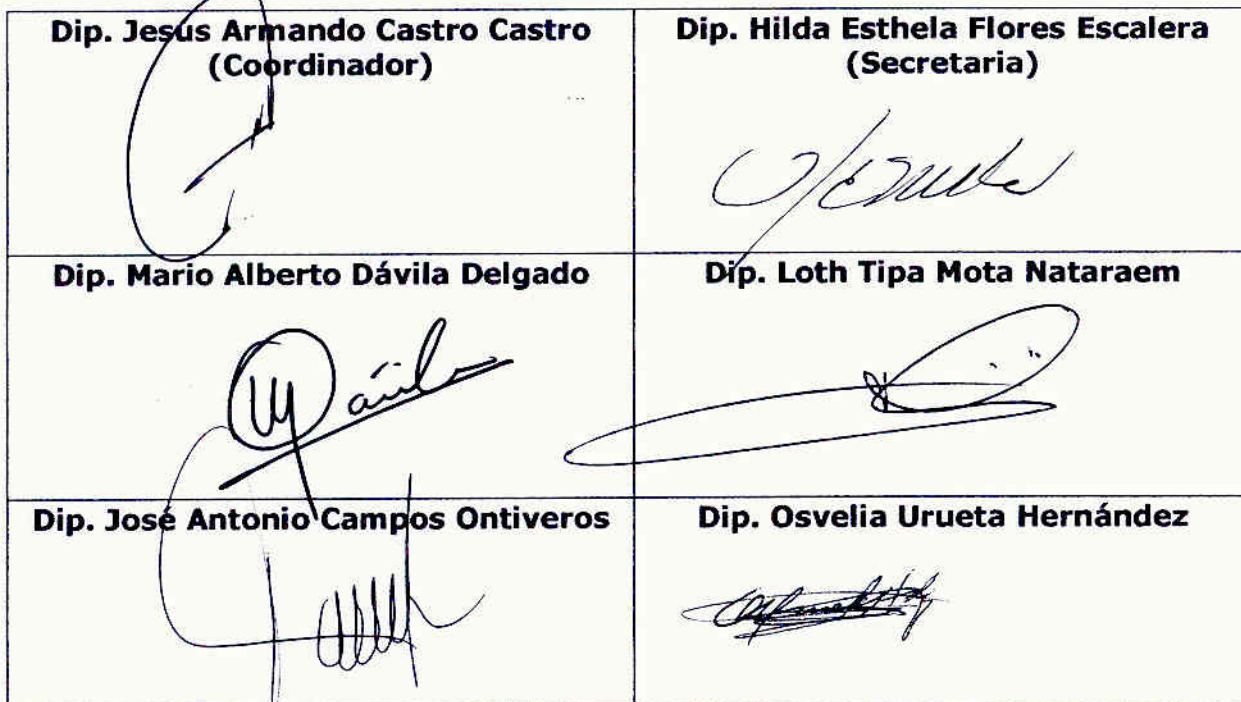 Dip. Jesús Armando Castro Castro
(Coordinador)
Dip. Hilda Esthela Flores Escalera
(Secretaria)
Dip. Mario Alberto Dávila Delgado
Dip. Loth Tipa Mota Nataraem
Dip. José Antonio Campos Ontiveros
Dip. Osvelia Urueta Hernández